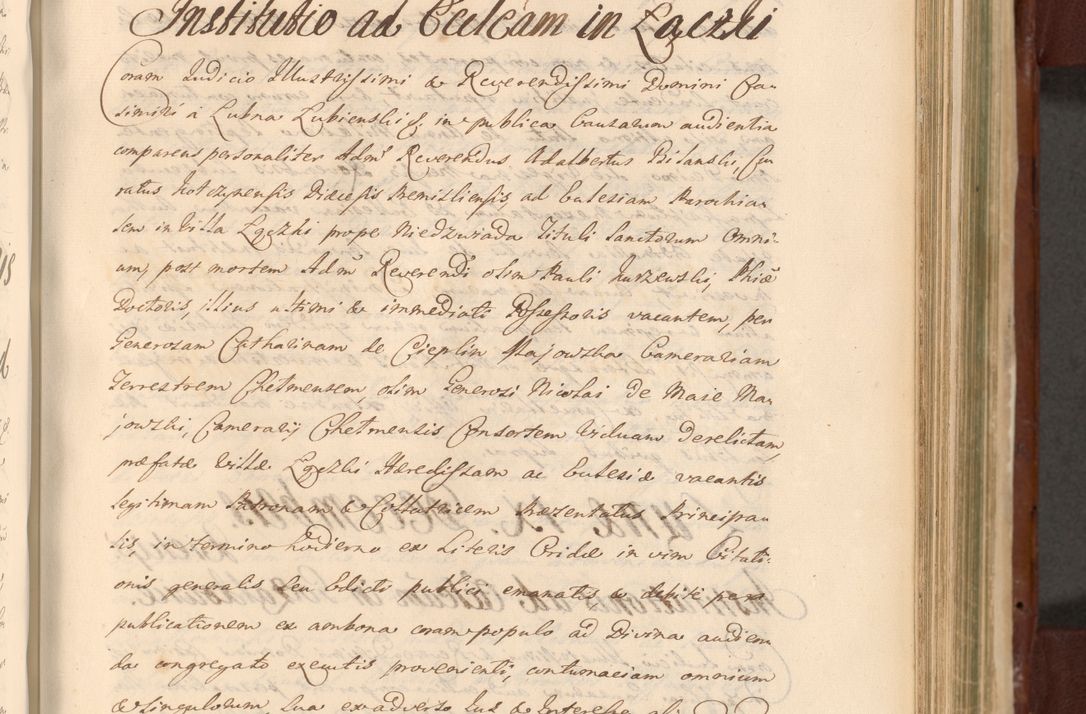 Institutio ad Eccleãm in Łączki
Coram Judicio Illustrissimi & Reverendissimi Domini Ca-
simiri á Lubna Lubienski &, in publica Causarum audientia
comparens personaliter Adm̃ Reverendus Adalbertus Bilanski, Cu
ratus Kotczynensis Diæcesis Premisliensis ad Eclesiam Parochia
lem in Villa Łączki prope Niedzwiada Tituli Sanctorum Omni-
um, post mortem Adm̃ Reverendi olim Pauli Kurzewski, Phiæ
Doctoris, illius ultimi & immediati Possessoris vacantem, per
Generosam Catharinam de Cieplin Majowska Camerariam
Terrestrem Chelmensem, olim Generosi Nicolai de Maie Ma-
jowski, Camerarij Chelmensis Consortem Viduam derelictam,
præfatæ Villæ Łączki Hæredissam ac Eclesiæ vacantis
legitimam Patronam & Collatricem Præzentatus Principa
lis, in termino hodierno ex Literis Cridæ in vim Citati-
onis generalis seu Edicti publici emanatis & debité per
publicationem ex ambona coram populo ad Divina audien
da congregato executis provenienti, contumaciam omnium
& singulorum, sua ex adverso Jus & Interesse